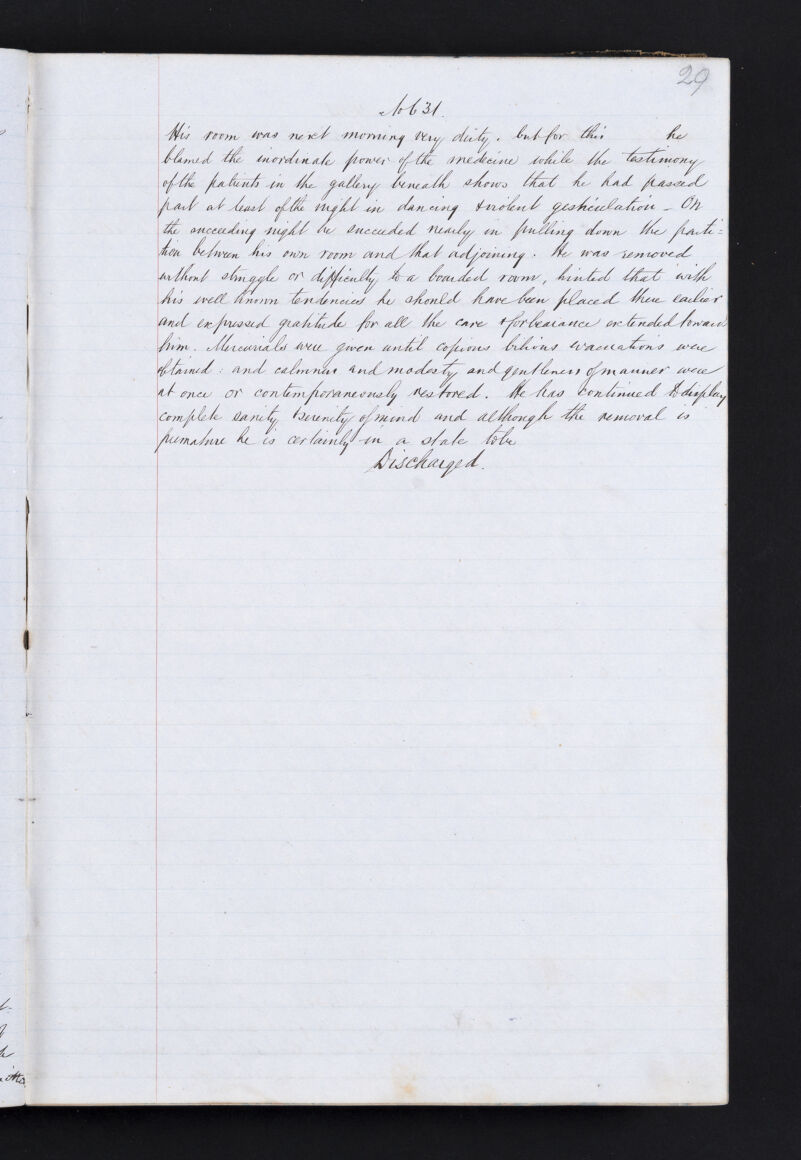 29
No 631.
His room was next morning very dirty. but for this he
blamed the inordinate power of the medicine while the testimony
of the patients in the gallery beneath shows that he had passed
part at least of the night in dancing & violent gesticulation - On
the succeeding night he succeeded nearly in pulling down the parti=
tion between his own room and that adjoining. He was removed
without struggle or difficulty to a boarded room, hinted that with
his well known tendencies he should have been placed there earlier
and expressed gratitude for all the care & forbearance extended toward
him. Mercurials were given until copious bilious evacuations were
obtained: and calmness and modesty and gentleness of manner were
at once or contemporaneously restored. He has continued to display
complete sanity & serenity of mind and although the removal is
premature he is certainly in a state to be
Discharged.